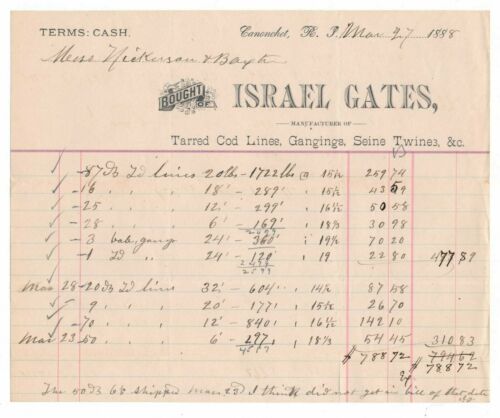 TERMS: CASH.
Canonchet, R. I. Mar 27 1888
Mess Nickerson & Baxter
BOUGHT OF
ISRAEL GATES,
MANUFACTURER OF
Tarred Cod Lines, Gangings, Seine Twines, &c.
87 ds Td lines 20 lbs - 1722 lbs @ 15 1/2 259 74
16 " " 18 " - 289 " 15 1/2 43
25 " " 12 " - 299 " 16 1/2 50 58
28 " " 6 " - 169 " 18 1/3 30 98
3 gang 24 " - 360 " 19 1/2 70 20
1 Td " 24 " - 120 " 19 22 80 477 89
Mar 28 - 20 ds Td lines 32 " - 604 " 14 1/2 87 58
9 " " 20 " - 177 " 26 70
70 " " 12 " - 840 " 16 1/2 142 10
Mar 23 50 " " 6 " - 297 " 18 1/3 54 45 310 83
$ 788 72
$ 788 72
The 50 ds 6s shipped Mar 23d I think did not get in bill of that date